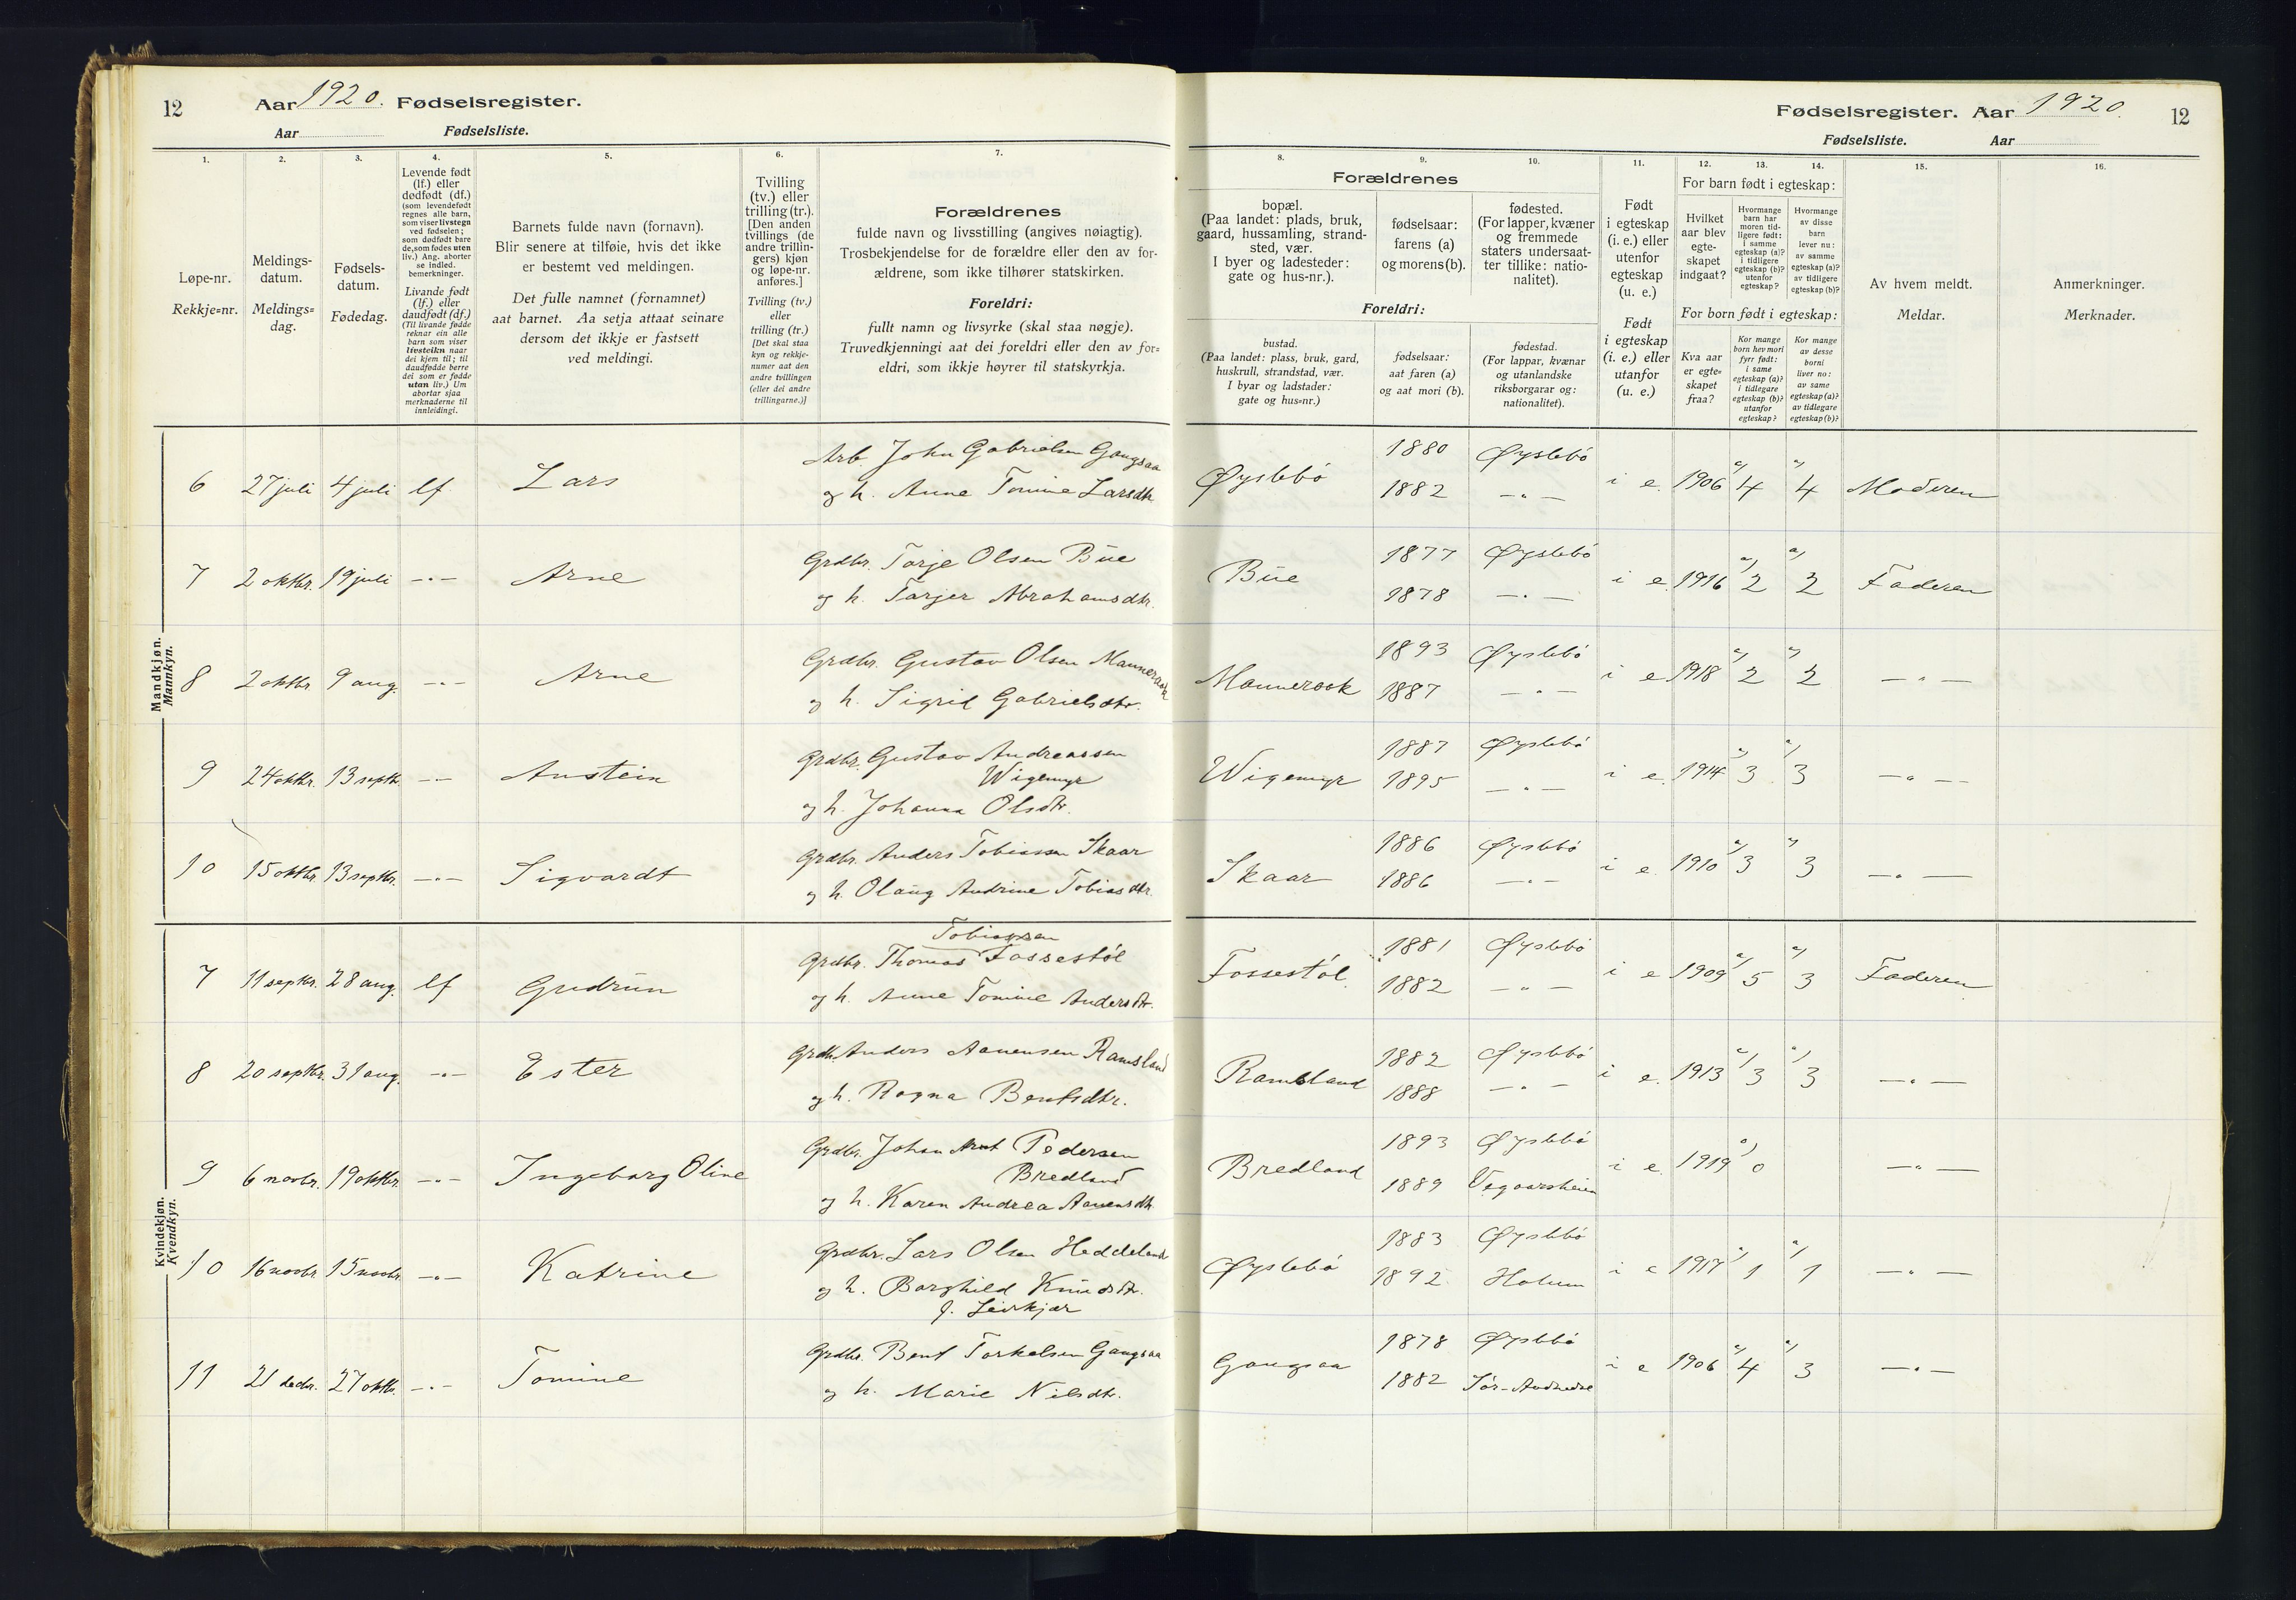 12
Aar 1920. Fødselsregister.
Aar Fødselsliste.
Fødselsregister. Aar 1920.
12
Fødselsliste. Aar
1.
Løpe-nr.
Rekkje=nr.
2.
Meldings-
datum.
Meldings=
dag.
3.
Fødsels-
datum.
Fødedag.
4.
Levende født
(lf.) eller
dødfødt (df.)
(som levendefødt
regnes alle barn,
som viser livstegn
ved fødselen;
som dødfødt bare
de, som fødes uten
liv.) Ang. aborter
se indled.
bemerkninger.
Livande født
(lf.) eller
daudfødt (df.)
(Til livande fødde
reknar ein alle
barn som viser
livsteikn naar
dei kjem til; til
daudfødde berre
dei som er fødde
utan liv.) Um
abortar sjaa
merknaderne til
innleidingi.
5.
Barnets fulde navn (fornavn).
Blir senere at tilføie, hvis det ikke
er bestemt ved meldingen.
Det fulle namnet (fornamnet)
aat barnet. Aa setja attaat seinare
dersom det ikkje er fastsett
ved meldingi.
6.
Tvilling
(tv.) eller
trilling (tr.).
[Den anden
tvillings (de
andre trillin-
gers) kjøn
og løpe-nr.
anføres.]
Tvilling (tv.)
eller
trilling (tr.)
[Det skal staa
kyn og rekkje-
numer aat den
andre tvillingen
(eller dei andre
trillingarne.)]
7.
Forældrenes
fulde navn og livsstilling (angives nøiagtig).
Trosbekjendelse for de forældre eller den av for-
ældrene, som ikke tilhører statskirken.
Foreldri:
fullt namn og livsyrke (skal staa nøgje).
Truvedkjenningi aat dei foreldri eller den av for=
eldri, som ikkje høyrer til statskyrkja.
8.
Forældrenes
bopæl.
(Paa landet: plads, bruk,
gaard, hussamling, strand-
sted, vær.
I byer og ladesteder:
gate og hus-nr.).
Foreldri:
bustad.
(Paa landet: plass, bruk, gard,
huskrull, strandstad, vær.
I byar og ladstader:
gate og hus=nr.)
9.
fødselsaar:
farens (a)
og morens (b).
fødselsaar:
aat faren (a)
og aat mori (b).
10.
fødested.
(For lapper, kvæner
og fremmede
staters undersaat-
ter tillike: natio-
nalitet).
fødestad.
(For lappar, kvænar
og utanlandske
riksborgarar og:
nationalitet).
11.
Født
i egteskap
(i. e.) eller
utenfor
egteskap
(u. e.)
Født
i egteskap
(i. e.) eller
utanfor
(u. e.)
12.
For barn født i egteskap:
Hvilket
aar blev
egte-
skapet
indgaat?
For born født i egteskap:
Kva aar
er egte=
skapet
fraa?
13.
Hvormange
barn har
moren tid-
ligere født:
i samme
egteskap (a)?
i tidligere
egteskap (b)?
utenfor
egteskap?
Kor mange
born hev mori
fyrr født:
i same
egteskap (a)?
i tidlegare
egteskap (b)?
utanfor
egteskap?
14.
Hvormange
av disse
barn
lever nu:
av samme
egteskap (a)?
av tidligere
egteskap (b)?
Kor mange
av desse
borni
liver no:
av same
egteskap (a)?
av tidlegare
egteskap (b)?
15.
Av hvem meldt.
Meldar.
16.
Anmerkninger.
Merknader.
Mandkjøn.
Mannkyn.
6 27 juli 4 juli lf. Lars Arb. John Gabrielsen Gangsaa Øyslebö 1880 Øyslebö i e. 1906 a) 4 a) 4 Moderen
og h. Anne Tomine Larsdtr. 1882 —"—
7 2 oktbr. 19 juli —"— Arne Grdbr. Torje Olsen Büe Büe 1877 Øyslebö i e. 1916 a) 2 a) 2 Faderen
og h. Tarjer Abrahamsdtr. 1878 —"—
8 2 oktbr. 9 aug. —"— Arne Grdbr. Gustav Olsen Mannerook Mannerook 1893 Øyslebö i e. 1918 a) 2 a) 2 —"—
og h. Sigrid Gabrielsdtr. 1887 —"—
9 24 oktbr. 13 septbr. —"— Anstein Grdbr. Gustav Andreassen
Wigemyr Wigemyr 1887 Øyslebö i e. 1914 a) 3 a) 3 —"—
og h. Johanna Olsdtr. 1895 —"—
10 15 oktbr. 13 septbr. —"— Sigvardt Grdbr. Anders Tobiassen Skaar Skaar 1886 Øyslebö i e. 1910 a) 3 a) 3 —"—
og h. Olaug Andrine Tobiasdtr. 1886 —"—
Kvindekjøn.
Kvendkyn.
Tobiassen
7 11 septbr. 28 aug. lf Gudrün Grdbr. Thomas Fossestöl Fossestöl 1881 Øyslebö i e 1909 a) 5 a) 3 Faderen
og h. Anne Tomine Andersdtr. 1882 —"—
8 20 septbr. 31 aug. —"— Ester Grdbr. Anders Aanensen Ramsland Ramsland 1882 Øyslebö i e. 1913 a) 3 a) 3 —"—
og h. Ragna Bentsdtr. 1888 —"—
9 6 novbr. 19 oktbr. —"— Ingeborg Oline Grdbr. Johan Arnt Pedersen
Bredland Bredland 1893 Øyslebö i e. 1919 a) 0 —"—
og h. Karen Andrea Aanensdtr. 1889 Vegaarsheien
10 16 novbr. 15 novbr. —"— Katrine Grdbr. Lars Olsen Heddeland Øyslebö 1883 Øyslebö i e 1917 a) 1 a) 1 —"—
og h. Borghild Knüdsdtr. 1892 Holum
f. Leirkjær
11 21 decbr. 27 oktbr. —"— Tomine Grdbr. Bent Torkelsen Gangsaa Gangsaa 1878 Øyslebö i e 1906 a) 4 a) 3 —"—
og h. Marie Nilsdtr. 1882 Sör-Audnedal